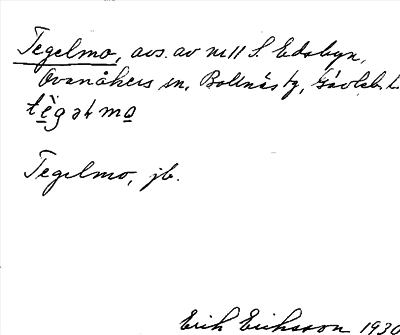 Tegelmo, avs. av nr 11 S. Edsbyn,
Ovanåkers sn, Bollnäs tg, Gävleb. l.
Tegelmo, jb.
Erik Eriksson 1930